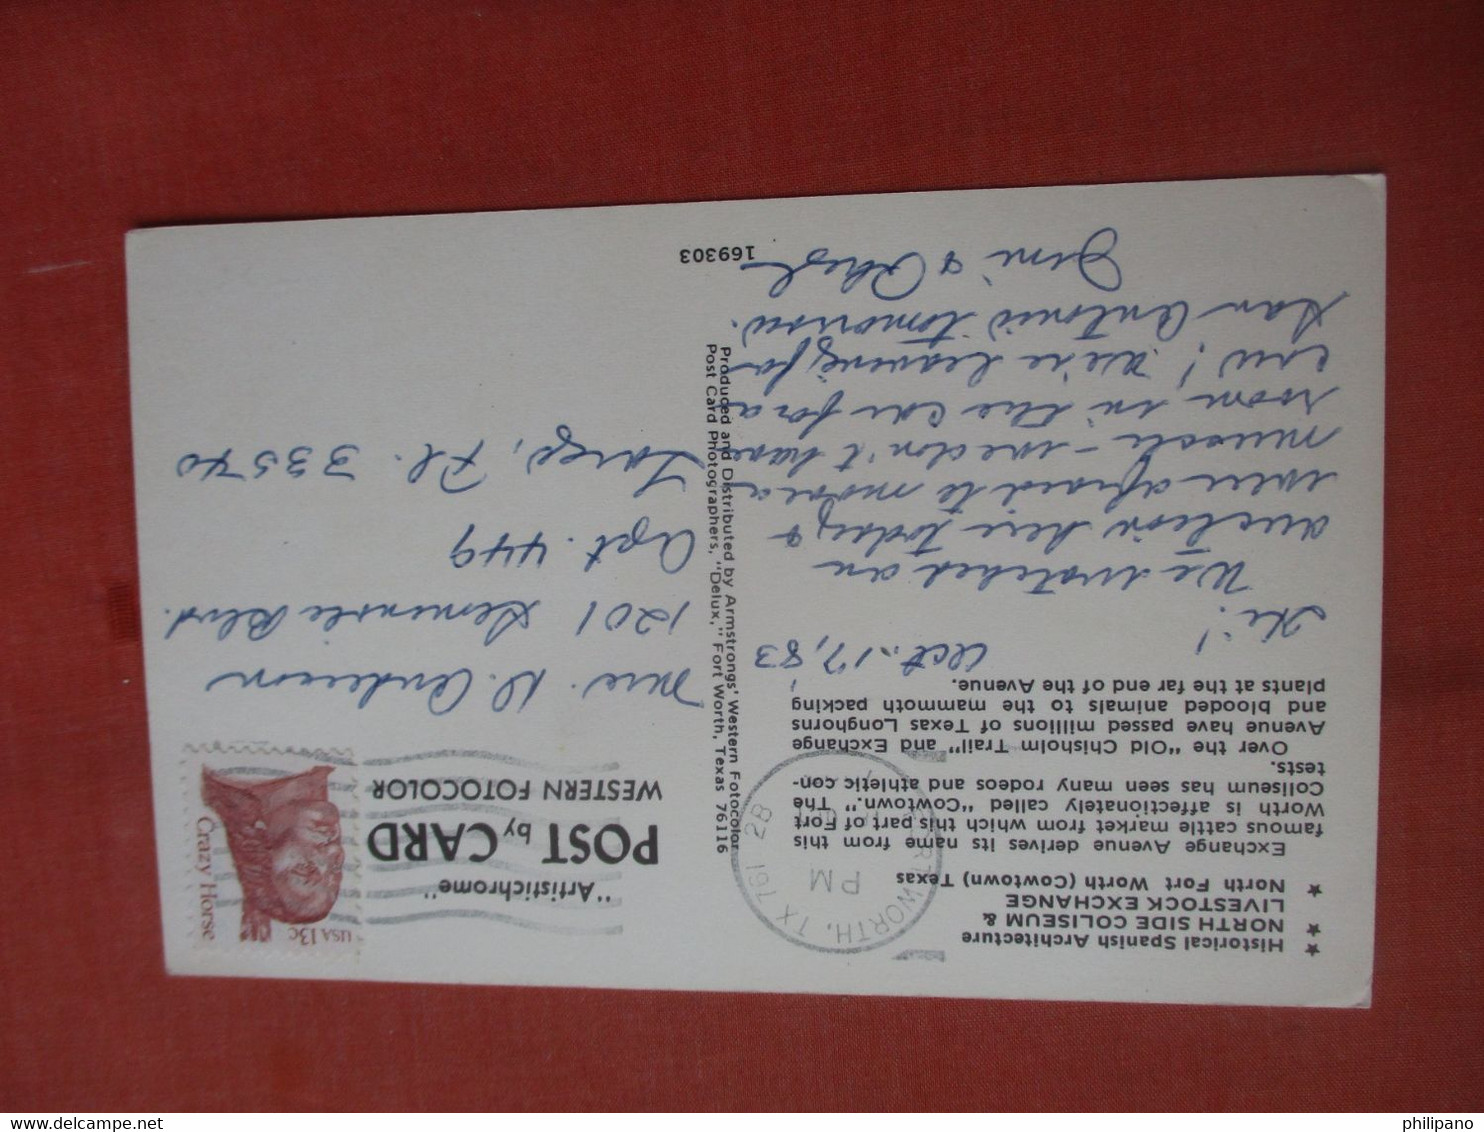 ★ Historical Spanish Architecture
★ NORTH SIDE COLISEUM &
LIVESTOCK EXCHANGE
★ North Fort Worth (Cowtown) Texas
Exchange Avenue derives its name from this
famous cattle market from which this part of Fort
Worth is affectionately called "Cowtown." The
Coliseum has seen many rodeos and athletic con-
tests.
Over the "Old Chisholm Trail" and Exchange
Avenue have passed millions of Texas Longhorns
and blooded animals to the mammoth packing
plants at the far end of the Avenue.
Oct. 17, '83
Hi!
We watched an
auction here today &
were afraid to move a
muscle - we don't have
room in the car for a
cow! We're leaving for
San Antonio tomorrow.
Jim &
169303
Produced and Distributed by Armstrongs' Western Fotocolor
Post Card Photographers, "Delux," Fort Worth, Texas 76116
FORT WORTH, TX 761 2B
PM
"Artistichrome"
POST by CARD
WESTERN FOTOCOLOR
USA 13c
Crazy Horse
Mrs. D. Anderson
1201 Seminole Blvd.
Apt. 449
Largo, Fl. 33540
philipano